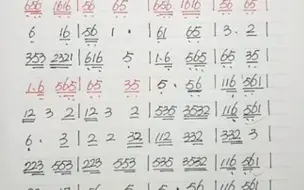 656 1616 | 56 65 | 656 1616 | 56 65 |
6 16 | 56 1 · | 61 65 | 3 · 2 |
353 2321 | 616 5 | 1·6 565 | 65 35 |
1·6 565 | 65 35 | 5 · 56 | 116 561 |
12 3 2 | 12 3 2 | 535 3532 | 116 561 |
6 · 3 | 2 2 32 | 112 332 | 332 3 |
223 553 | 223 553 | 535 3532 | 116 561 |